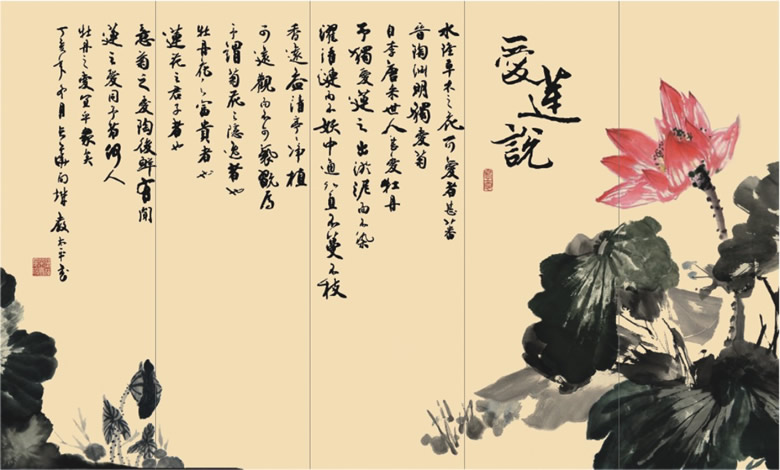 愛蓮說
水陸草木之花可愛者甚蕃
晉陶淵明獨愛菊
自李唐来世人甚愛牡丹
予獨愛蓮之出淤泥而不染
濯清漣而不妖中通外直不蔓不枝
香遠益清亭亭净植
可遠觀而不可褻翫焉
予謂菊花之隱逸者也
牡丹花之富貴者也
蓮花之君子者也
噫菊之愛陶後鮮有聞
蓮之愛同予者何人
牡丹之愛宜乎衆矣
丁亥年